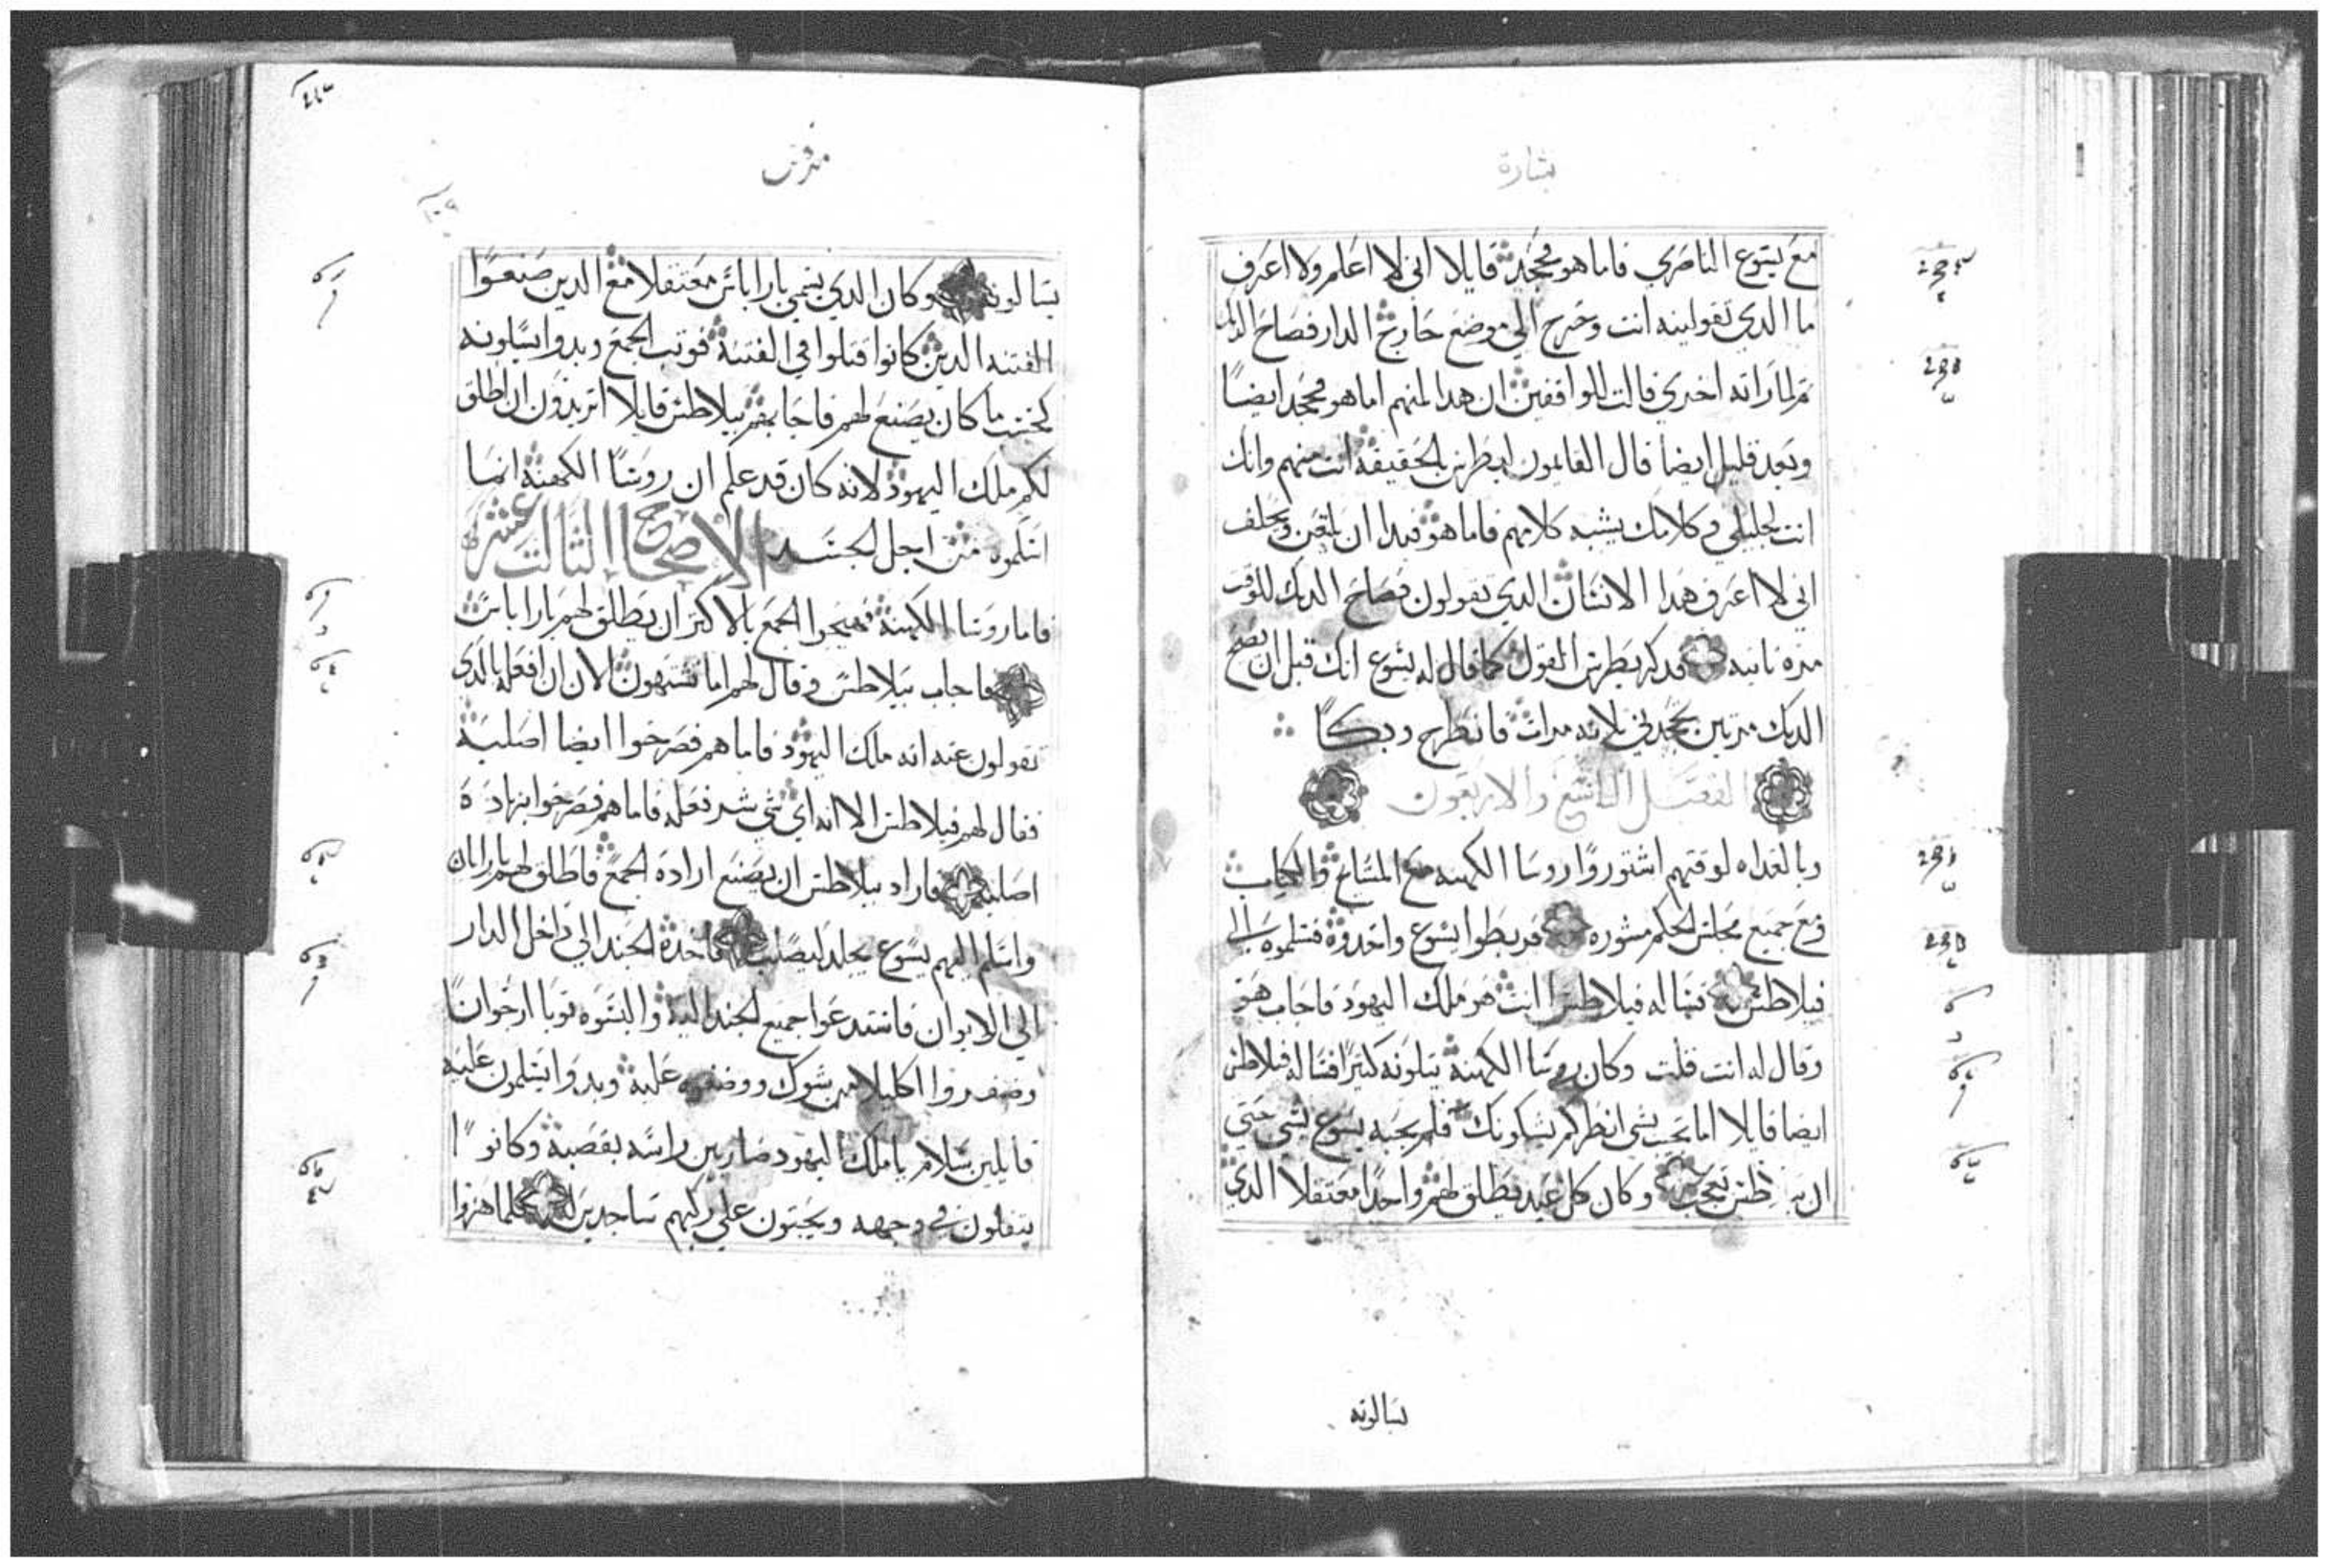 بشارة
مع يسوع الناصري فاما هو فجحد قايلا اني لا اعلم ولا اعرف
ما الدي تقولينه انت وخرج الي موضع خارج الدار فصاح الديك
تم لما راته اخري قالت للواقفين ان هدا لمنهم اما هو فجحد ايضا
وبعد قليل ايضا قال القايمون لبطرس بالحقيقة انت منهم وانك
انت جليلي وكلامك يشبه كلامهم فاما هو فبدا ان يلعن ويحلف
اني لا اعرف هدا الانسان الدي تقولون فصاح الديك للوقت
مرة تانيه فدكر بطرس القول كما قال له يسوع انك قبل ان يصيح
الديك مرتين تجحدني تلاته مرات فانطرح وبكا
الفصل التاسع والاربعون
وبالغداه لوقتهم اشتوروا روسا الكهنه مع المشايخ والكتاب
ومع جميع مجلس الحكم مشوره فربطوا يسوع واخدوه فتسلموه الي
فيلاطس فساله فيلاطس انت هو ملك اليهود فاجاب هو
وقال له انت قلت وكان روسا الكهنة يتلونه كتيرا فساله فيلاطس
ايضا قايلا اما تجيب بشي انظر كم يشكونك فلم يجبه يسوع بشي حتي
ان تعجب وكان كل عيد يطلق لهم واحدا معتقلا الدي
يسالونه
مرقس
يسالونه وكان الدي يسمي باراباس معتقلا مع الدين صنعوا
الفتنه الدين كانوا قتلوا في الفتنة فوتب الجمع وبدوا يسلونه
كحسب ما كان يصنع لهم فاجابهم بيلاطس قايلا اتريدون ان اطلق
لكم ملك اليهود لانه كان قد علم ان روسا الكهنة انما
اسلموه من اجل الحسد الاصحاح التالت عشر
فاما روسا الكهنة فهيجوا الجمع بالاكتر ان يطلق لهم باراباس
فاجاب بيلاطس وقال لهم اما تشتهون الان ان افعله بالدي
تقولون عنه انه ملك اليهود فاما هم فصرخوا ايضا اصلبه
فقال لهم فيلاطس الا انه اي شي شر فعله فاما هم فصرخوا بزيادة
اصلبه فاراد بيلاطس ان يصنع ارادة الجمع فاطلق لهم بارابان
واسلم اليهم يسوع يجلد ليصلب فاخدة الجند الي داخل الدار
الي الايوان فاستدعوا جميع الجند اليه والبسوه توبا ارجوانا
وضفروا اكليلا من شوك ووضعوه عليه وبدوا يسلمون عليه
قايلين سلام يا ملك اليهود ضاربين راسه بقصبة وكانوا
يتفلون في وجهه ويجتون علي ركبهم ساجدين له فلما هزوا